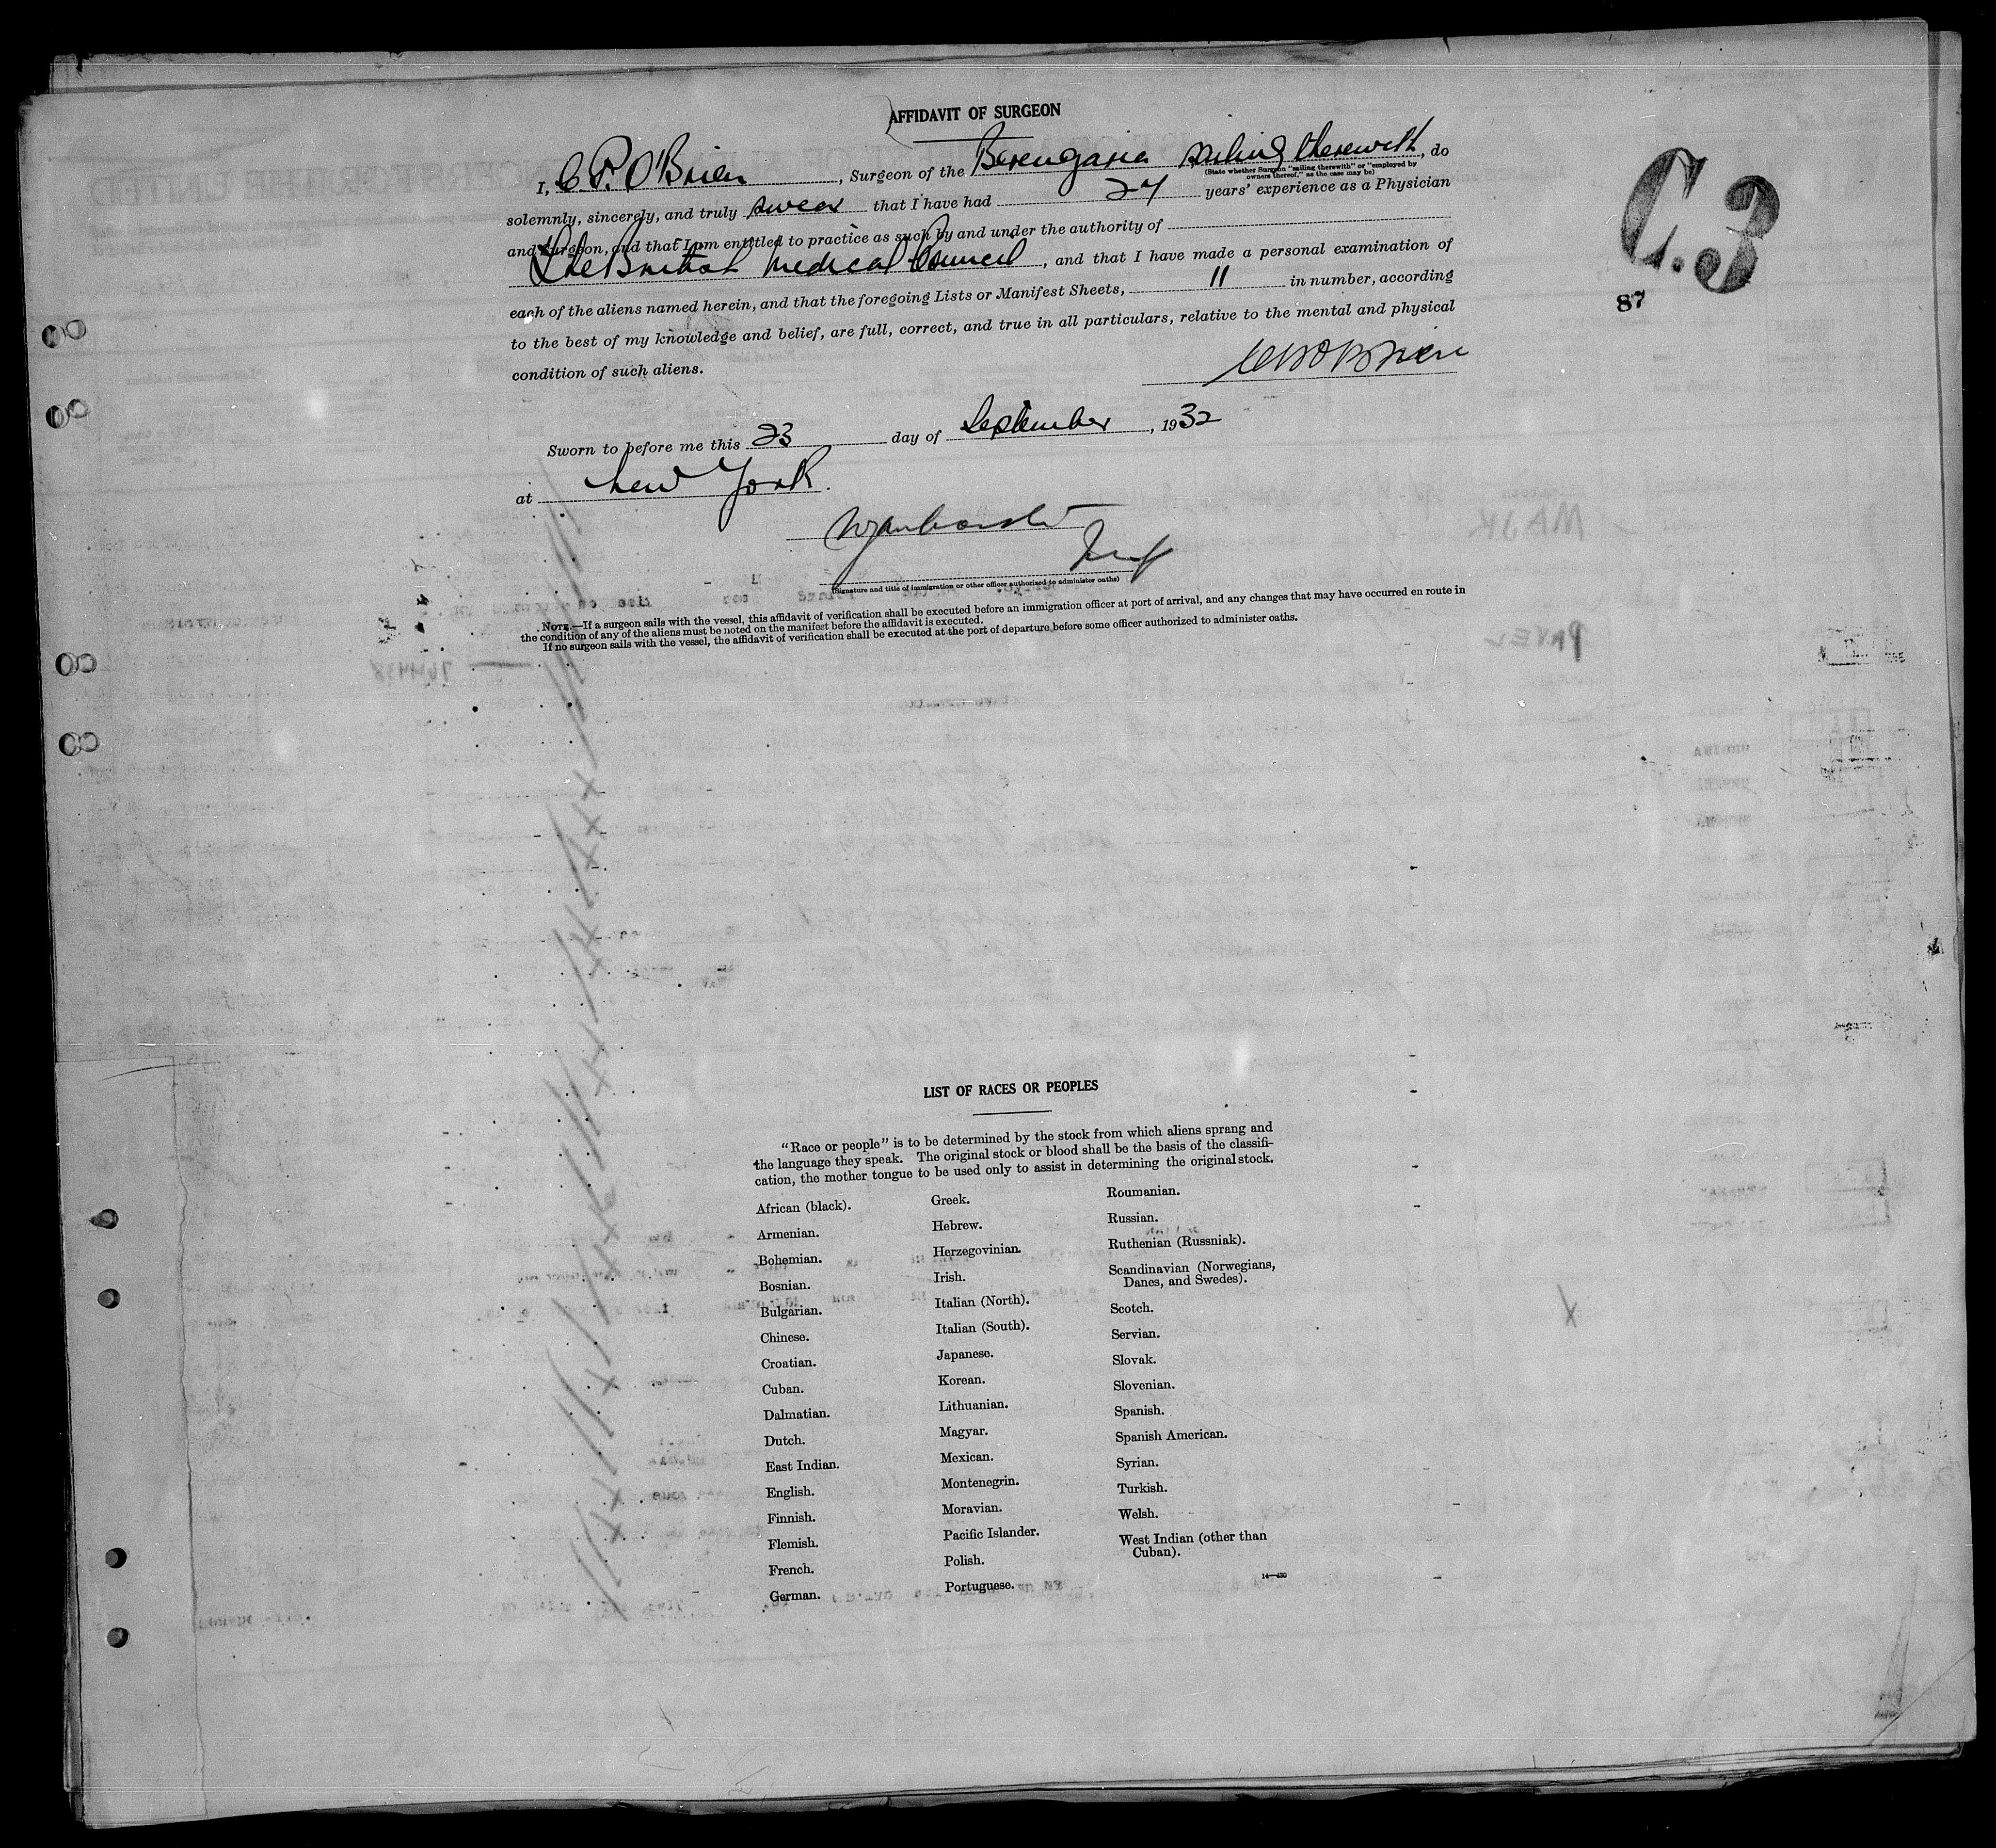 AFFIDAVIT OF SURGEON
I, C P. O'Brien, Surgeon of the Berengaria sailing therewith, do
(State whether Surgeon "sailing therewith" or "employed by
owners thereof," as the case may be)
solemnly, sincerely, and truly swear that I have had 27 years' experience as a Physician
and Surgeon, and that I am entitled to practice as such by and under the authority of
The British Medical Council, and that I have made a personal examination of
each of the aliens named herein, and that the foregoing Lists or Manifest Sheets, 11 in number, according
to the best of my knowledge and belief, are full, correct, and true in all particulars, relative to the mental and physical
condition of such aliens.
C P O'Brien
C.3
87
Sworn to before me this 23 day of September, 1932
at New York.
(Signature and title of immigration or other officer authorized to administer oaths)
NOTE.—If a surgeon sails with the vessel, this affidavit of verification shall be executed before an immigration officer at port of arrival, and any changes that may have occurred en route in
the condition of any of the aliens must be noted on the manifest before the affidavit is executed.
If no surgeon sails with the vessel, the affidavit of verification shall be executed at the port of departure before some officer authorized to administer oaths.
LIST OF RACES OR PEOPLES
"Race or people" is to be determined by the stock from which aliens sprang and
the language they speak. The original stock or blood shall be the basis of the classifi-
cation, the mother tongue to be used only to assist in determining the original stock.
African (black).
Armenian.
Bohemian.
Bosnian.
Bulgarian.
Chinese.
Croatian.
Cuban.
Dalmatian.
Dutch.
East Indian.
English.
Finnish.
Flemish.
French.
German.
Greek.
Hebrew.
Herzegovinian.
Irish.
Italian (North).
Italian (South).
Japanese.
Korean.
Lithuanian.
Magyar.
Mexican.
Montenegrin.
Moravian.
Pacific Islander.
Polish.
Portuguese.
Roumanian.
Russian.
Ruthenian (Russniak).
Scandinavian (Norwegians,
Danes, and Swedes).
Scotch.
Servian.
Slovak.
Slovenian.
Spanish.
Spanish American.
Syrian.
Turkish.
Welsh.
West Indian (other than
Cuban).
14—430